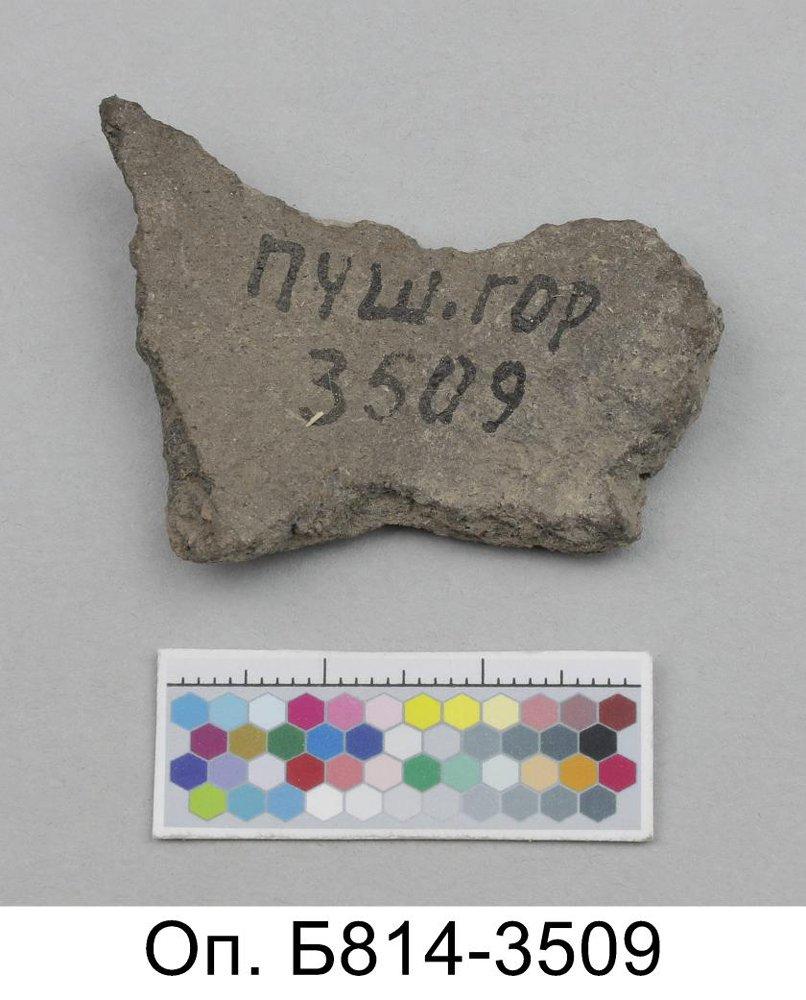 ПУШ.ГОР
3509
Оп. Б814-3509